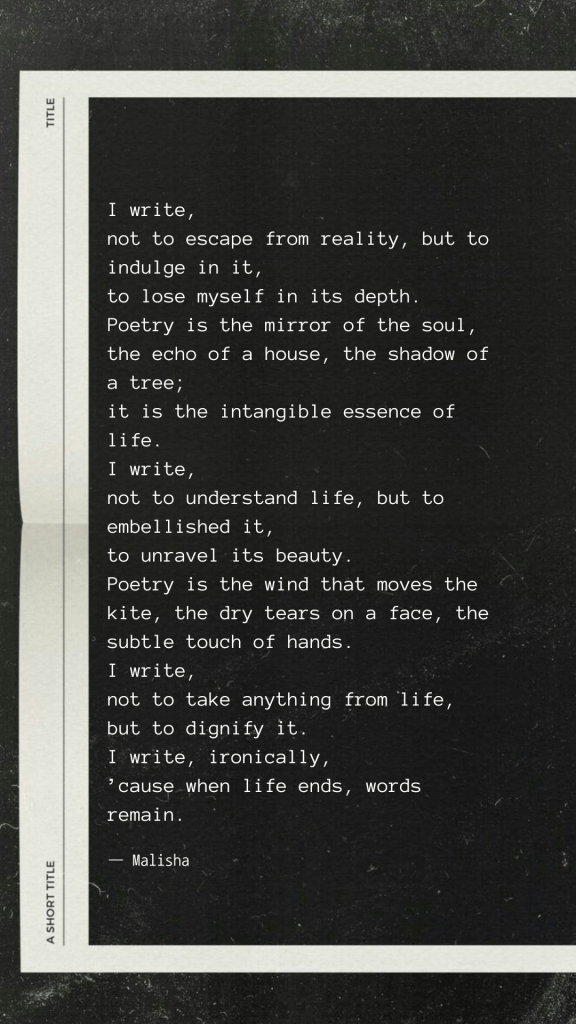 TITLE
I write,
not to escape from reality, but to
indulge in it,
to lose myself in its depth.
Poetry is the mirror of the soul,
the echo of a house, the shadow of
a tree;
it is the intangible essence of
life.
I write,
not to understand life, but to
embellished it,
to unravel its beauty.
Poetry is the wind that moves the
kite, the dry tears on a face, the
subtle touch of hands.
I write,
not to take anything from life,
but to dignify it.
I write, ironically,
’cause when life ends, words
remain.
— Malisha
A SHORT TITLE